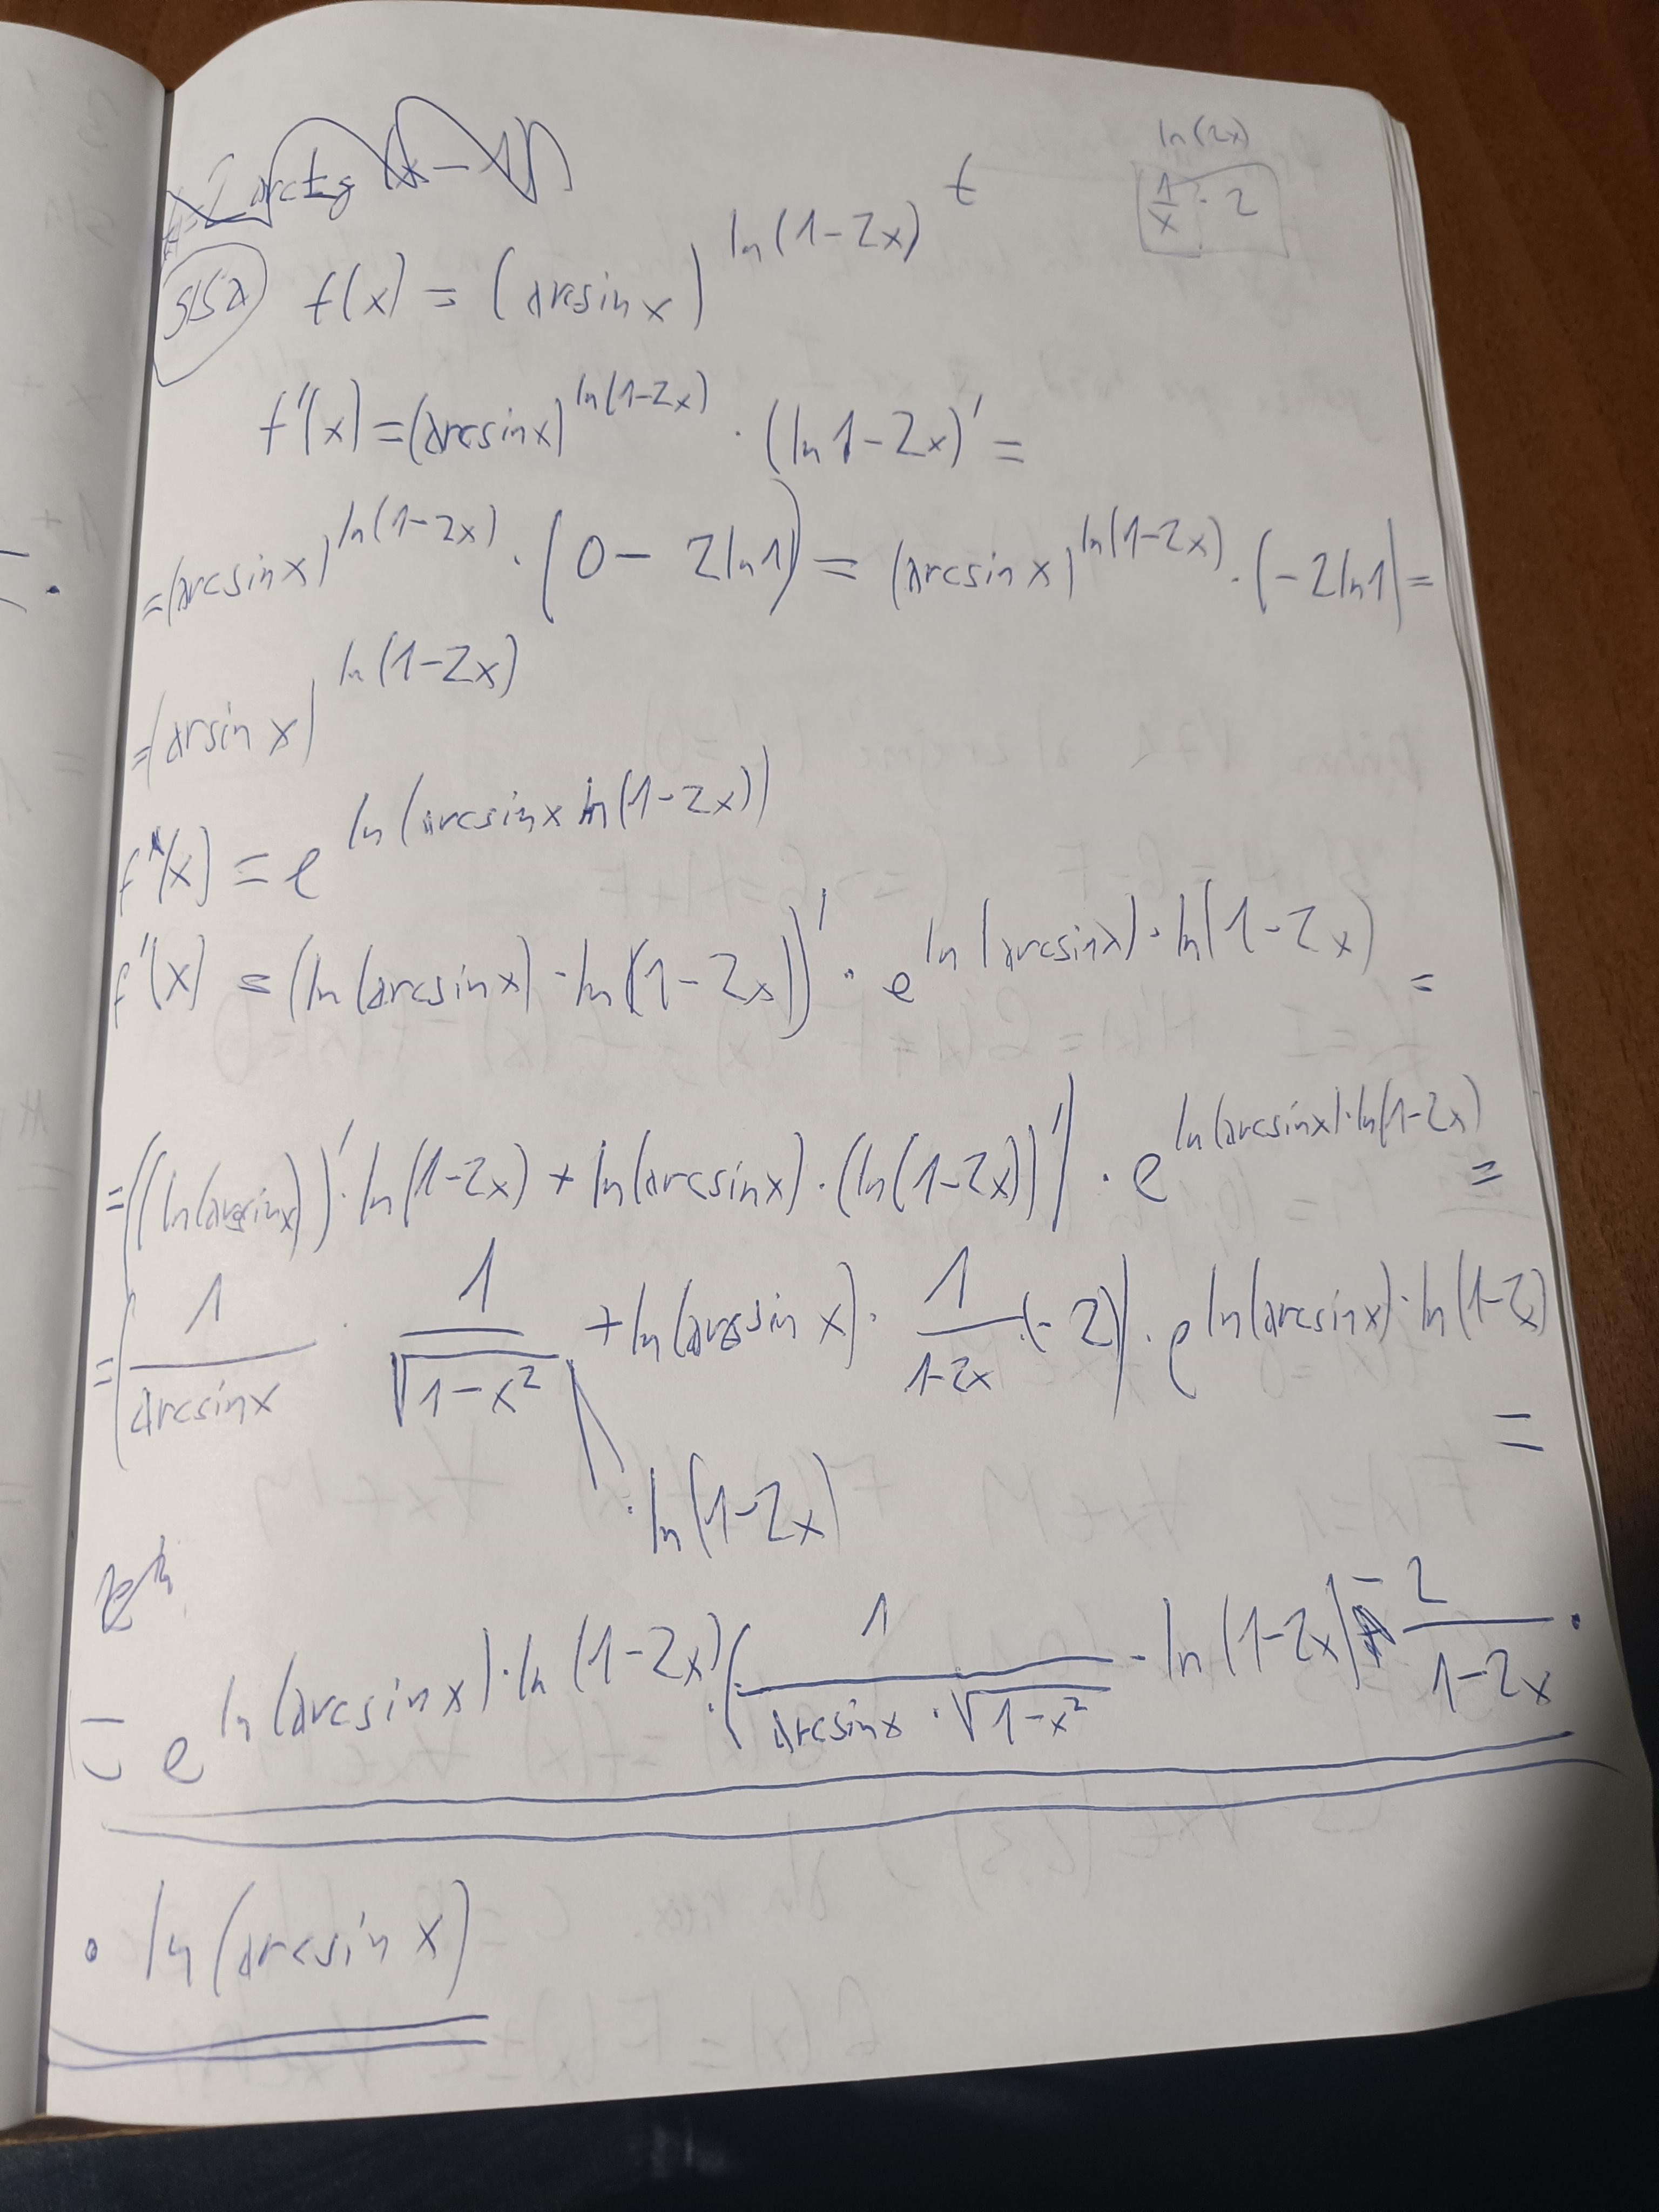 ln(2x)
1/x · 2
t
515a f(x) = (arcsin x)^ln(1-2x)
f'(x) = (arcsin x)^ln(1-2x) · (ln 1-2x)' =
=(arcsin x)^ln(1-2x) · (0 - 2ln1) = (arcsin x)^ln(1-2x) · (-2ln1) =
=(arsin x)^ln(1-2x)
f(x) = e^ln(arcsin x ln(1-2x))
f'(x) = (ln(arcsin x) · ln(1-2x))' · e^ln(arcsin x) · ln(1-2x) =
=((ln(arcsin x))' · ln(1-2x) + ln(arcsin x) · (ln(1-2x))') · e^ln(arcsin x) · ln(1-2x) =
=(1/arcsin x · 1/√1-x² + ln(arcsin x) · 1/1-2x (-2)) · e^ln(arcsin x) · ln(1-2x) =
· ln(1-2x)
= e^ln(arcsin x) · ln(1-2x) · (1/arcsin x · √1-x² · ln(1-2x) - 2/1-2x ·
· ln(arcsin x)